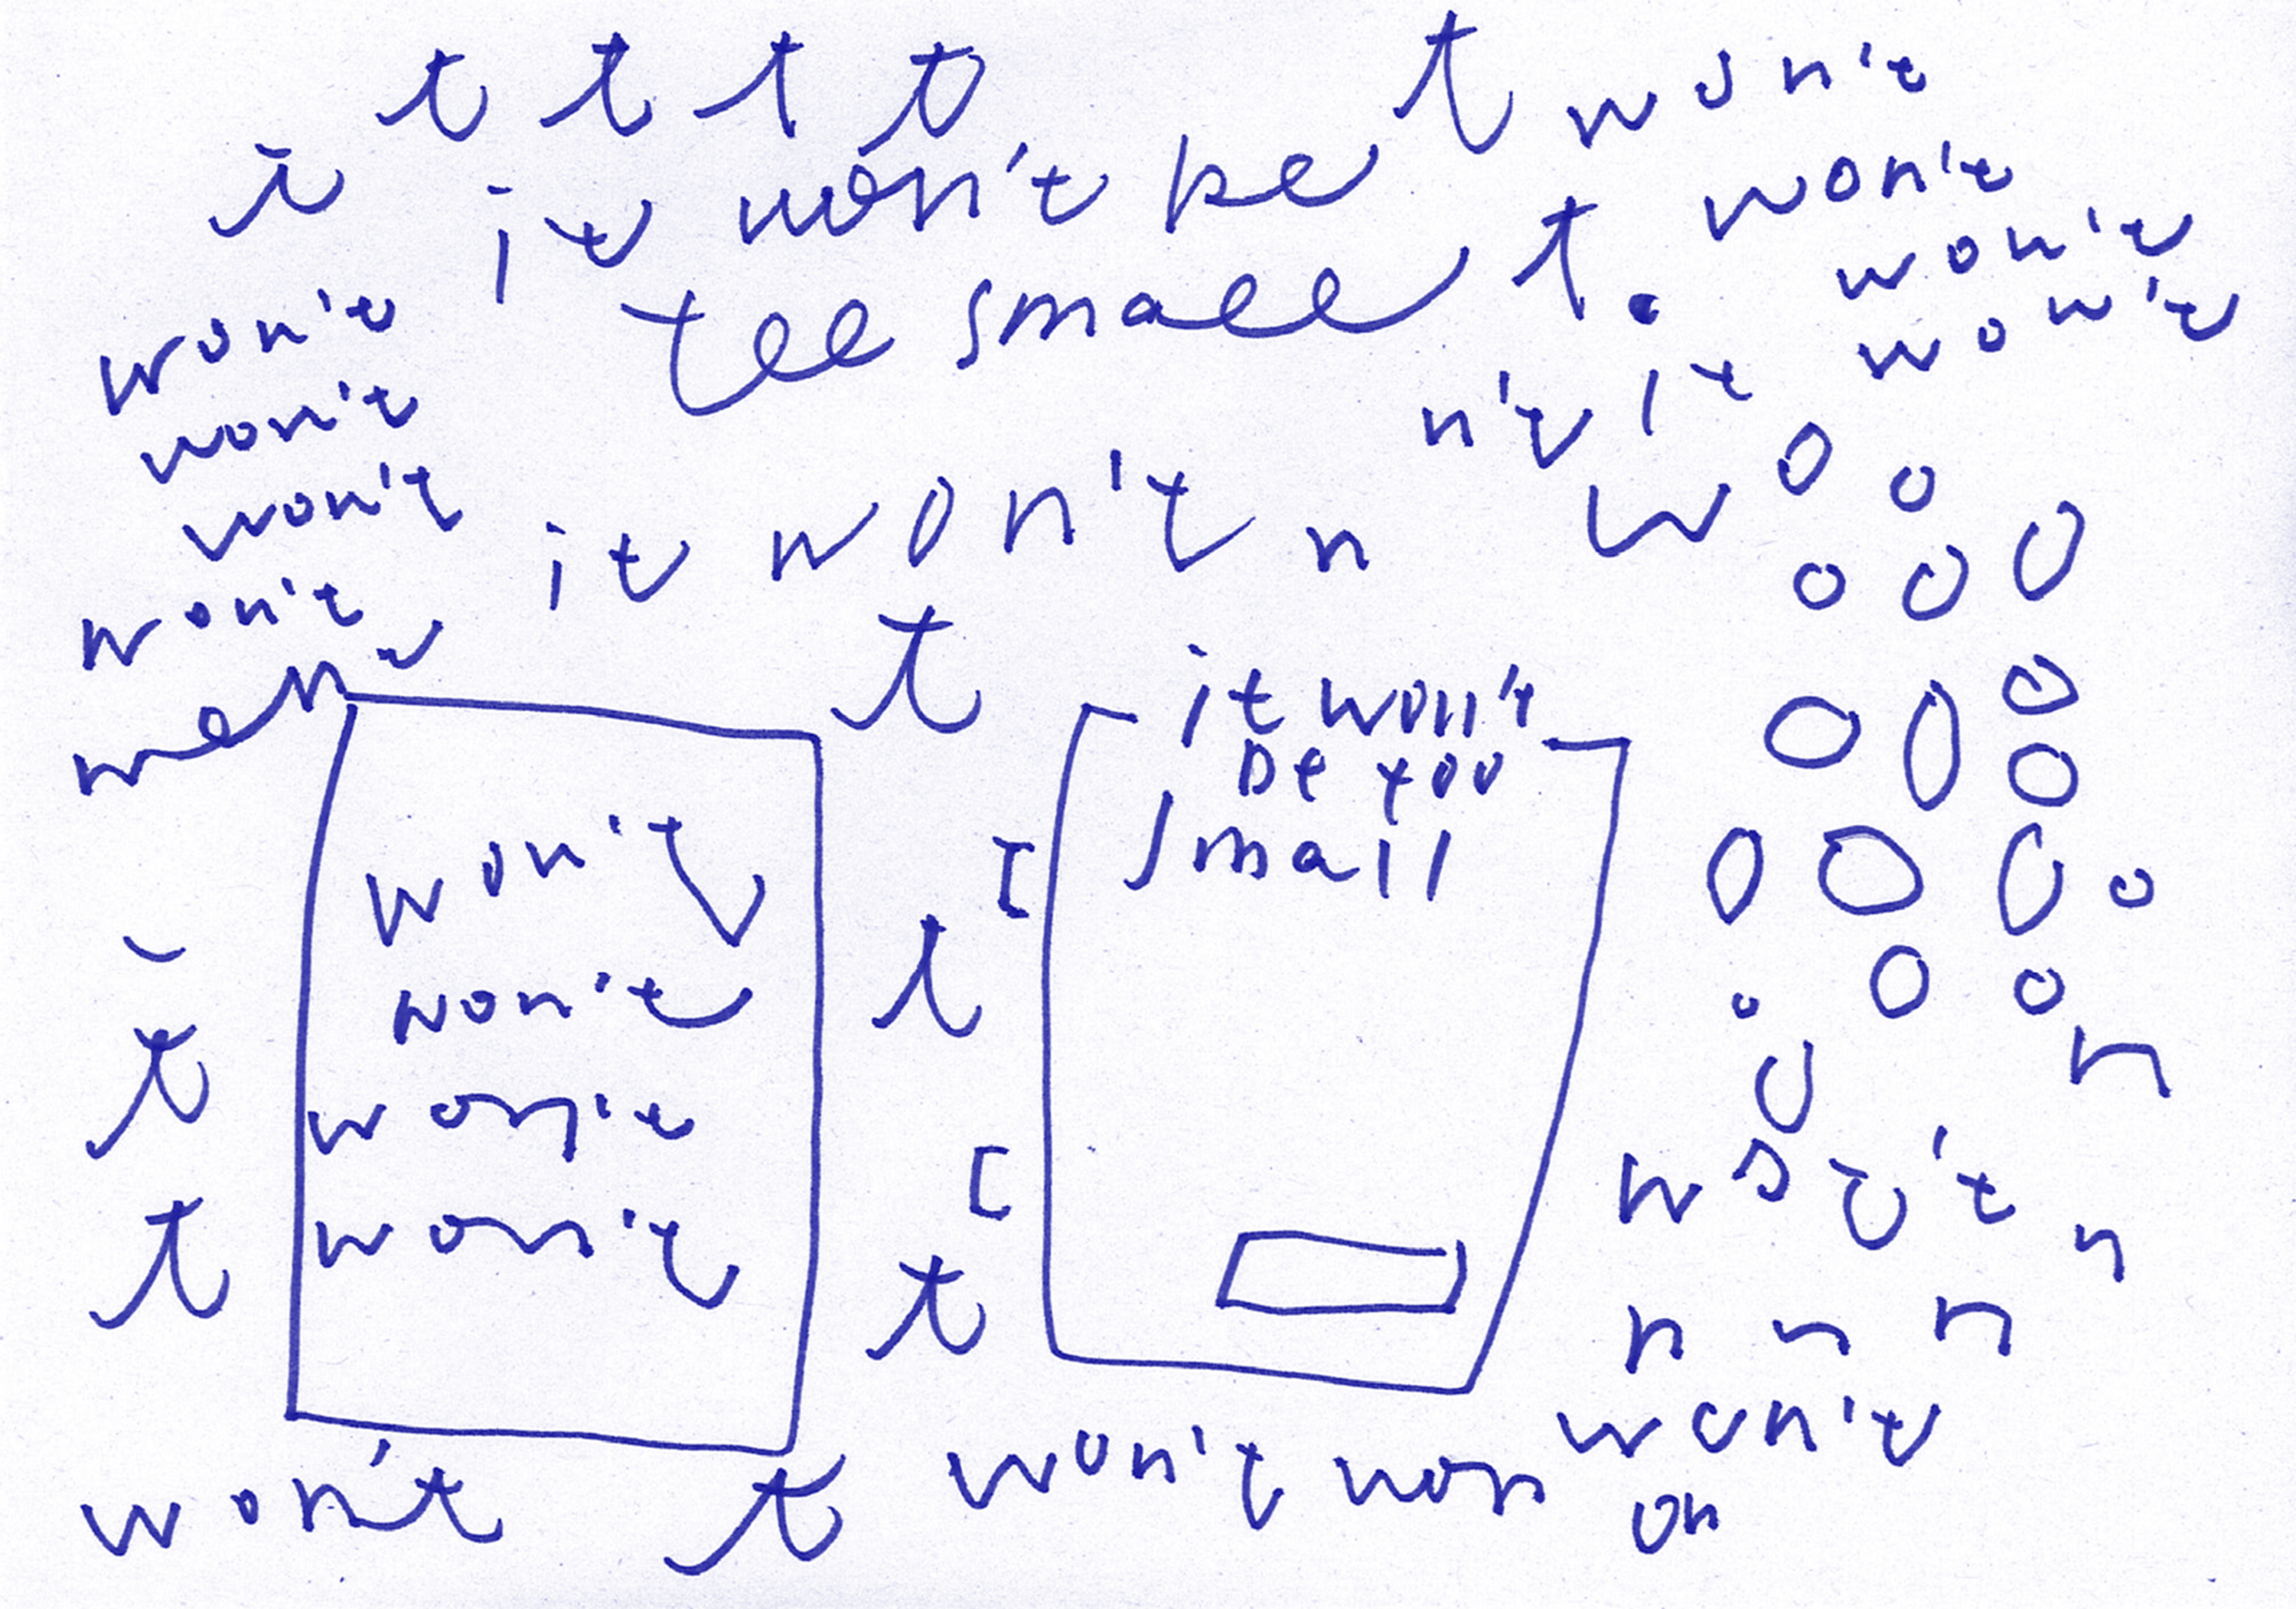 t t t t t won't
t it won't be won't
tee small t . won't
won't n't it won't
won't w o o
won't it won't n o o o
won't
won t it won't
be too
small
o o o o
won't o o o o
t won't t o o o
t won't [ o n
t won't t won't n
n n n
won't t won't won won't
on